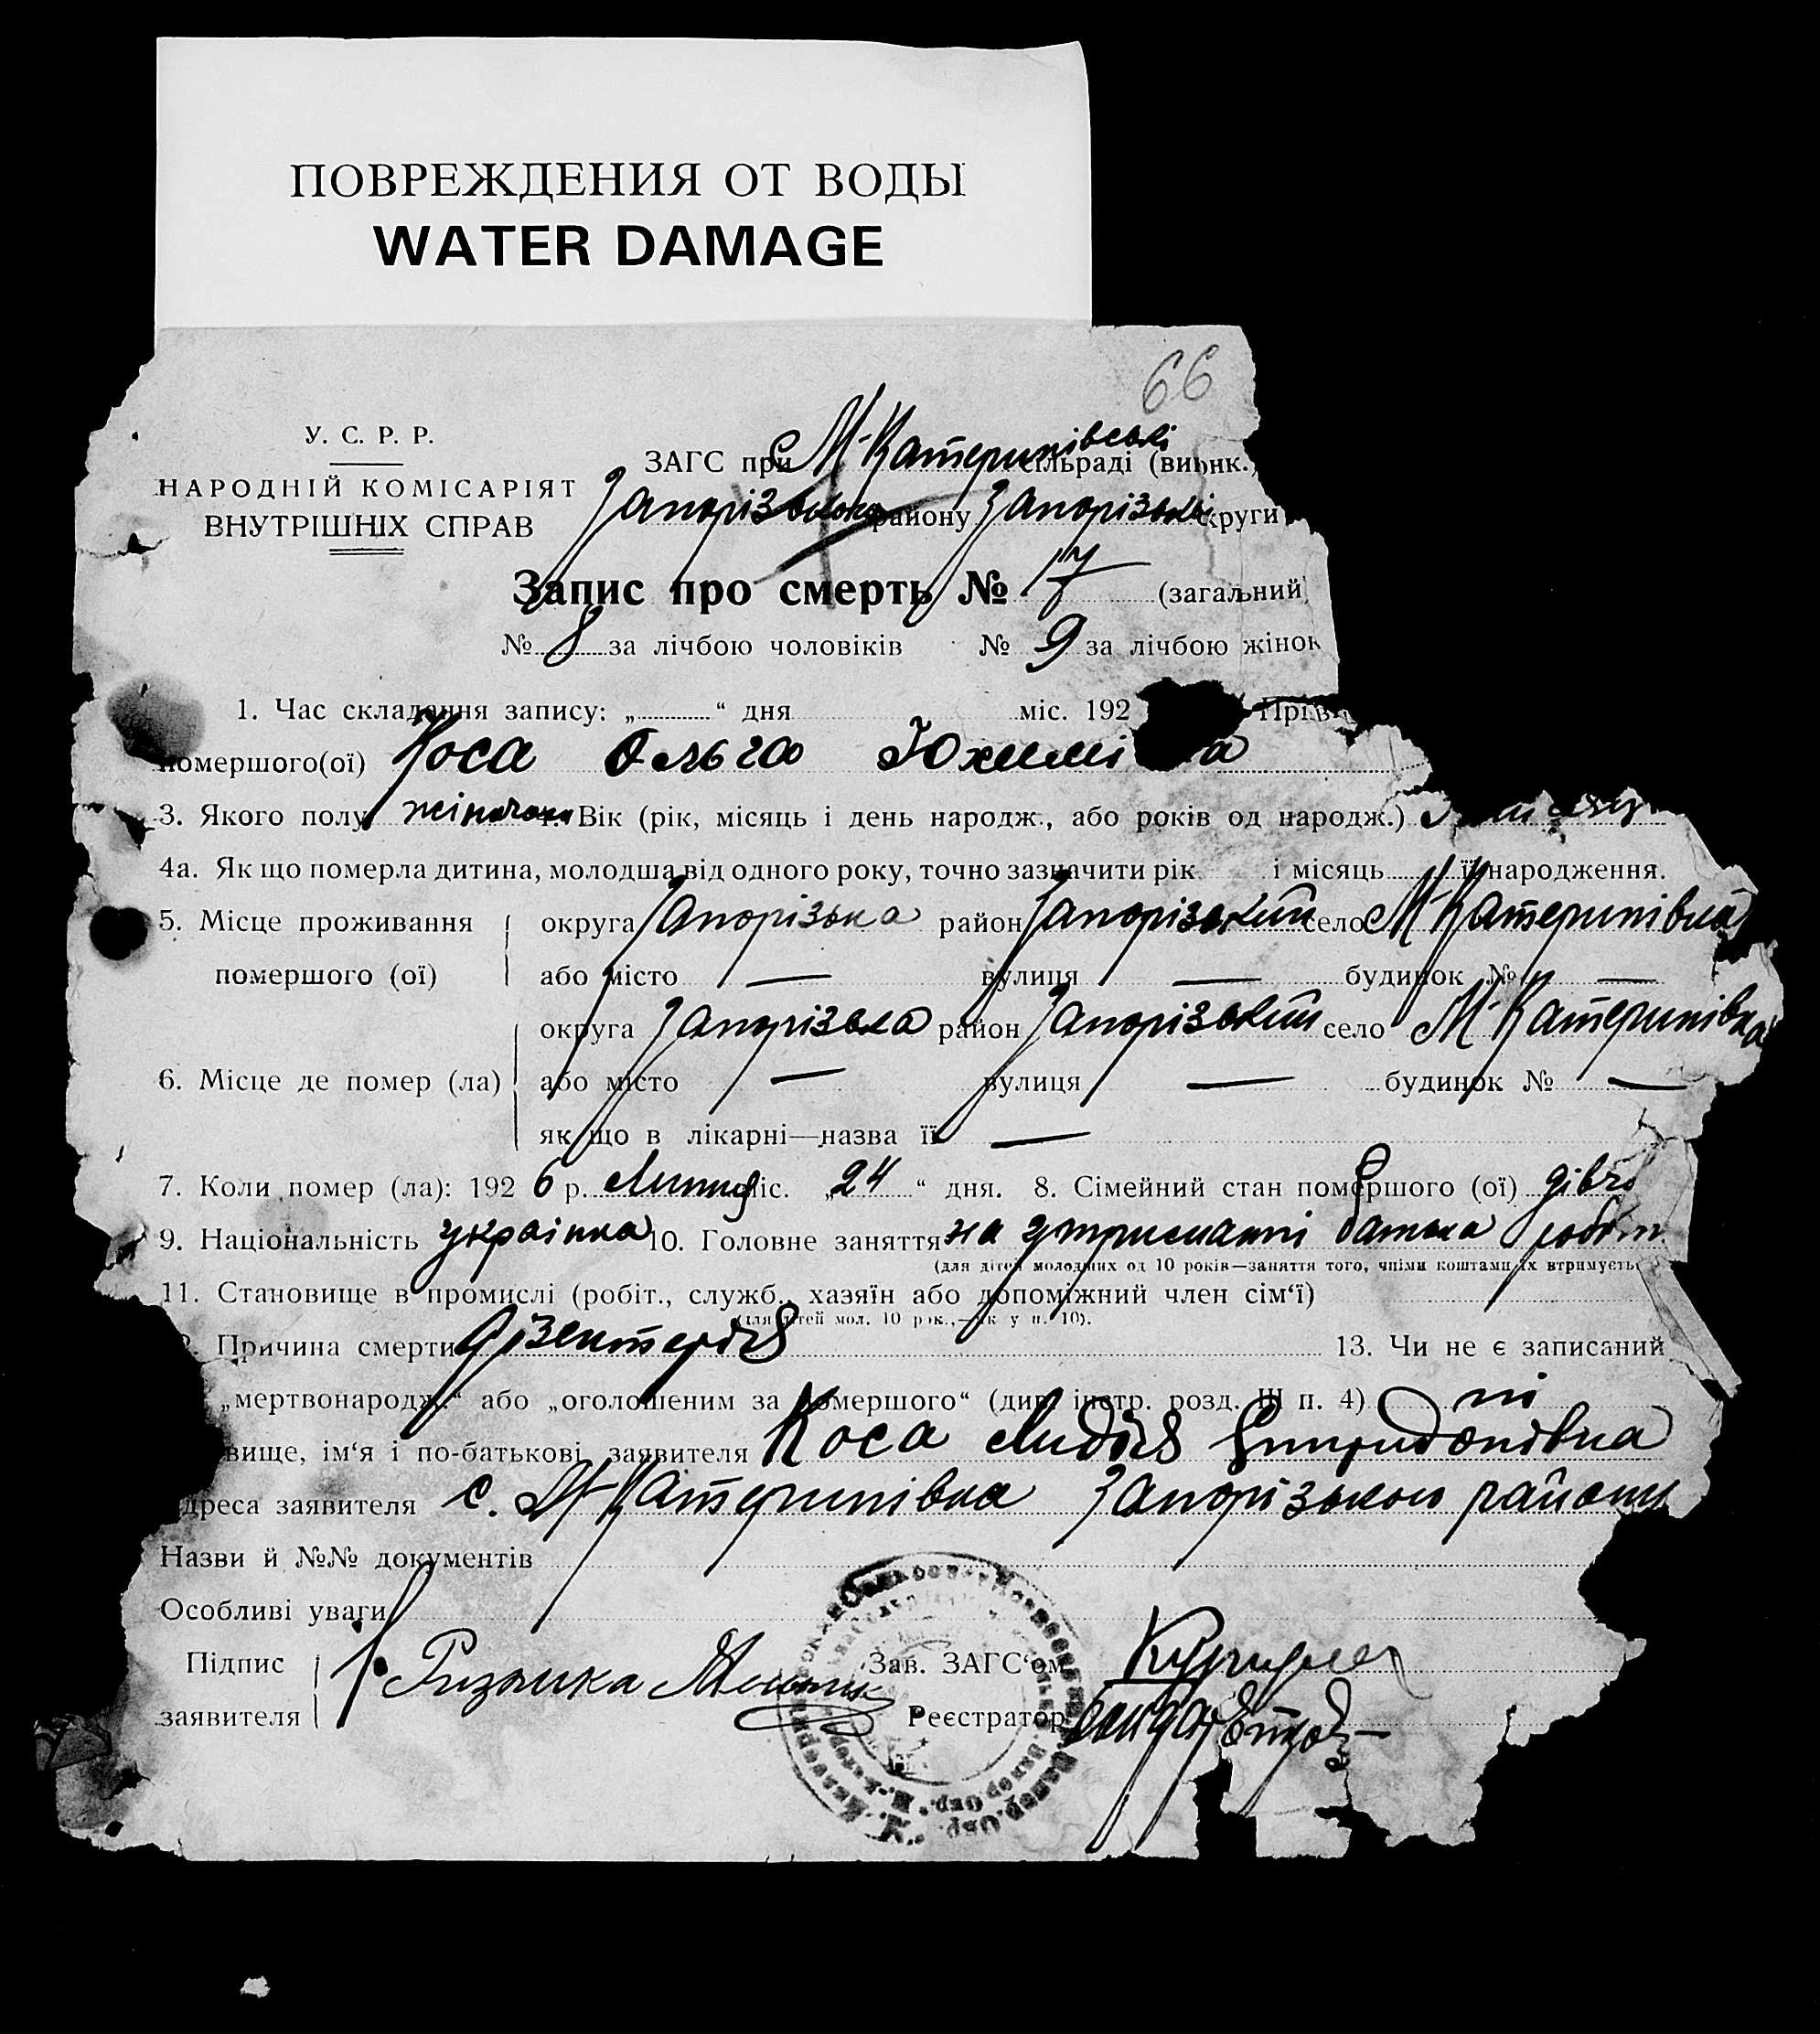 ПОВРЕЖДЕНИЯ ОТ ВОДЫ
WATER DAMAGE
66
У. С. Р. Р.
НАРОДНІЙ КОМІСАРІЯТ
ВНУТРІШНІХ СПРАВ
ЗАГС при М-Катеринівські сільраді (виднк.)
Запорізького району Запорізької округи
Запис про смерть № 17 (загальний)
№ 8 за лічбою чоловіків № 9 за лічбою жінок
1. Час складання запису: „ “ дня міс. 192
помершого(ої) Коса Ольга
3. Якого полу жіночого 4. Вік (рік, місяць і день народж., або років од народж.)
4а. Як що померла дитина, молодша від одного року, точно зазначити рік і місяць її народження.
5. Місце проживання помершого (ої) округа Запорізька район Запорізький село М-Катеринівка
або місто — вулиця — будинок № —
6. Місце де помер (ла) округа Запорізька район Запорізький село М-Катеринівка
або місто — вулиця — будинок № —
як що в лікарні—назва її —
7. Коли помер (ла): 1926 р. Липня міс. „24“ дня. 8. Сімейний стан помершого (ої)
9. Національність українка 10. Головне заняття на утриманні батька
(для дітей молодших од 10 років—заняття того, чиїми коштами їх втримують
11. Становище в промислі (робіт., служб., хазяїн або допоміжний член сім‘ї)
(для дітей мол. 10 рок.,—як у п. 10).
Причина смерти дізентерія 13. Чи не є записаний
„мертвонародж.“ або „оголошеним за помершого“ (див. інстр. розд. III п. 4) ні
вище, ім‘я і по-батькові заявителя Коса Лидія Спиридонівна
адреса заявителя с. М-Катеринівка Запорізького району
Назви й №№ документів
Особливі уваги
Підпис заявителя Зав. ЗАГС‘ом
Реєстратор